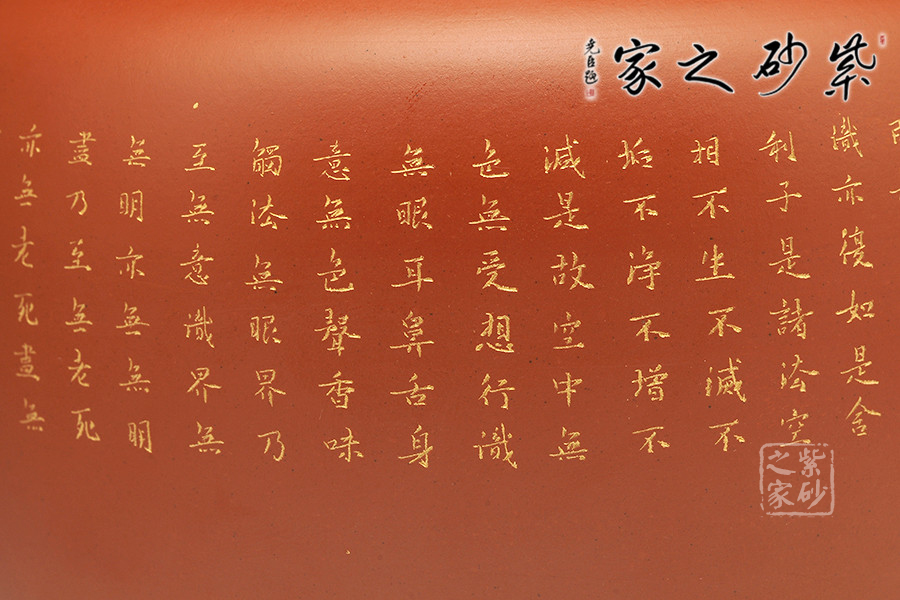 紫砂之家
堯臣題
識亦復如是舍
利子是諸法空
相不生不滅不
垢不淨不增不
減是故空中無
色無受想行識
無眼耳鼻舌身
意無色聲香味
觸法無眼界乃
至無意識界無
無明亦無無明
盡乃至無老死
亦無老死盡無
紫砂
之家